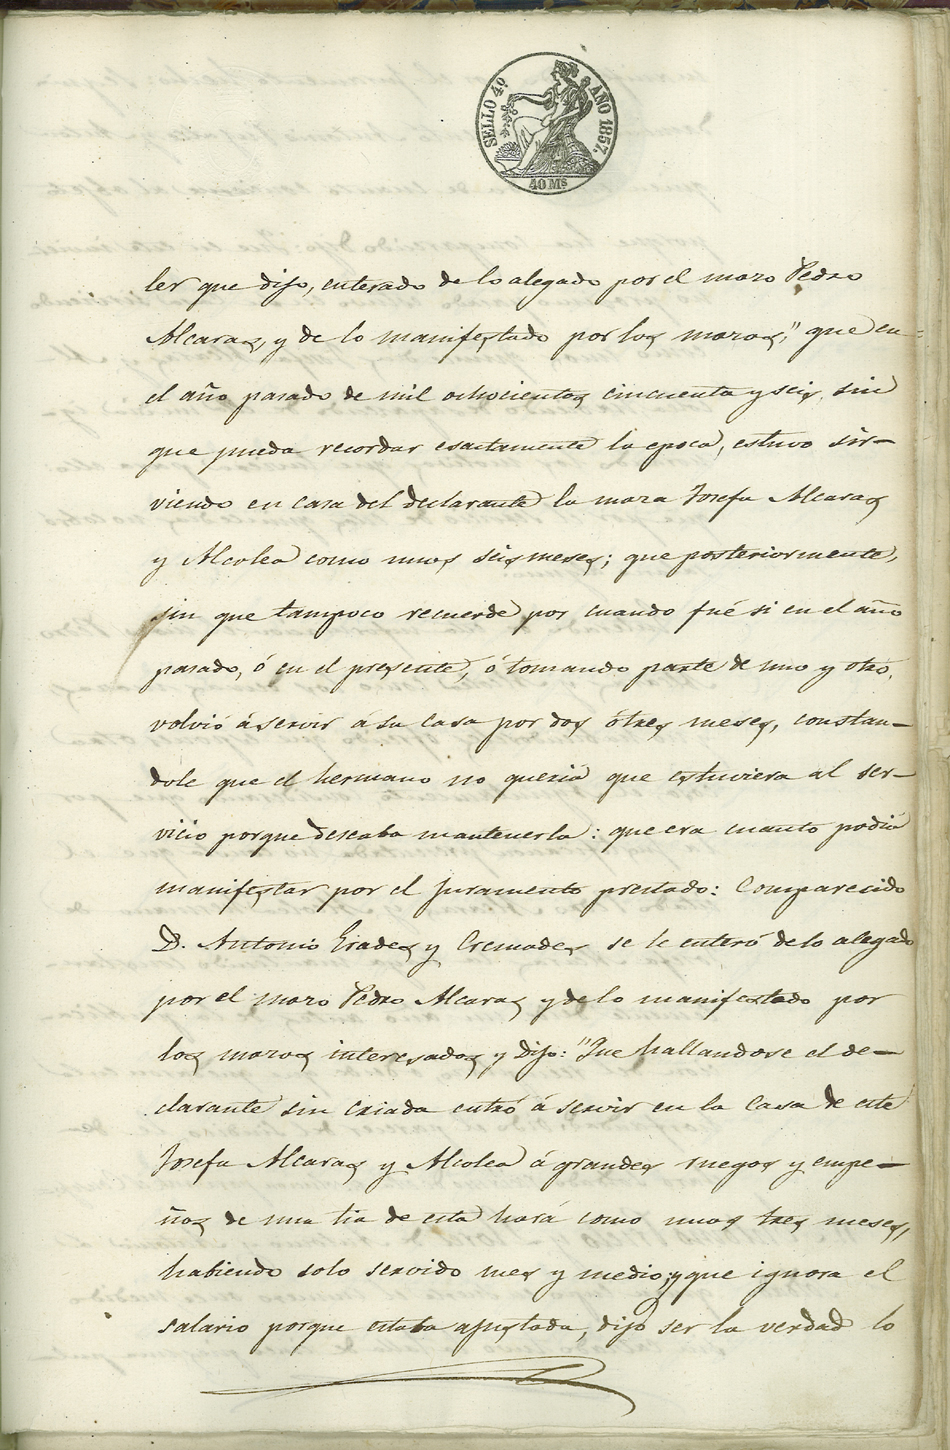 SELLO 4º AÑO 1857.
40 Mˢ
ler que dijo, enterado de lo alegado por el mozo Pedro
Alcaraz, y de lo manifestado por los mozos," que en
el año pasado de mil ochocientos cincuenta y seis, sin
que pueda recordar esactamente la epoca, estuvo sir-
viendo en casa del declarante la moza Josefa Alcaraz
y Alcolea como unos seis meses; que posteriormente,
sin que tampoco recuerde por cuando fué si en el año
pasado, ó en el presente, ó tomando parte de uno y otro,
volvió á servir á su casa por dos ó tres meses, constan-
dole que el hermano no queria que estuviera al ser-
vicio porque deseaba mantenerla: que era cuanto podia
manifestar por el juramento prestado: Comparecido
D. Antonio Erades y Cremades se le enteró de lo alegado
por el mozo Pedro Alcaraz y de lo manifestado por
los mozos interesados y dijo: "Que hallandose el de-
clarante sin criada entró á servir en la casa de este
Josefa Alcaraz y Alcolea á grandes ruegos y empe-
ños de una tia de esta hará como unos tres meses,
habiendo solo servido mes y medio; y que ignora el
salario porque estaba ajustada, dijo ser la verdad lo